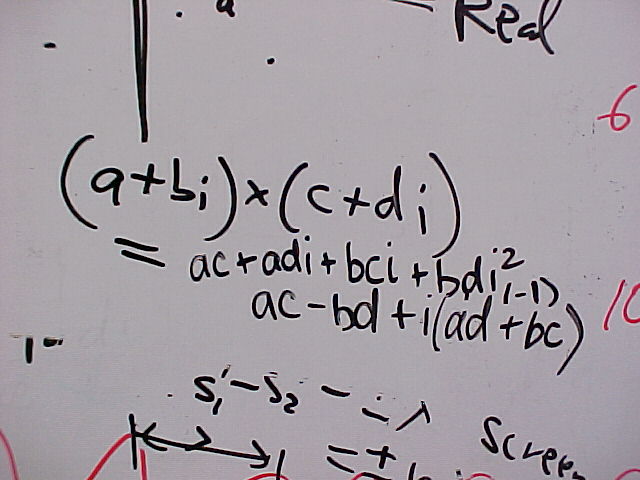 a Real
6
(a+bi)×(c+di)
= ac+adi+bci+bdi²
(-1)
ac-bd+i(ad+bc) 10
S₁'-S₂ -
Screen
= +